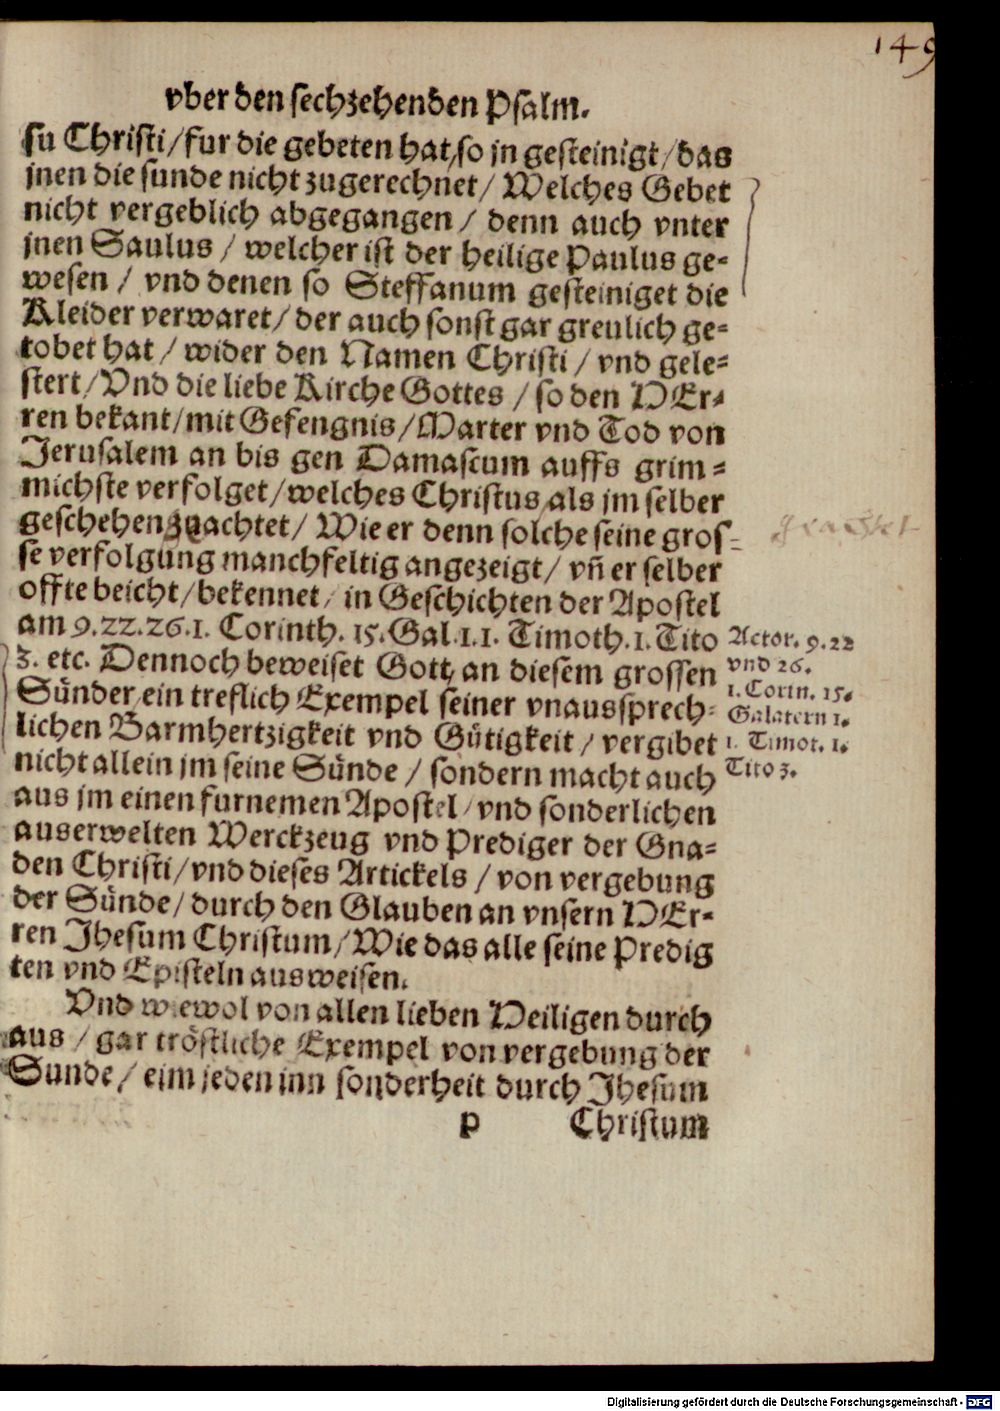 149
vber den sechzehenden Psalm.
su Christi/fur die gebeten hat/so jn gesteinigt/das
jnen die sunde nicht zugerechnet/ Welches Gebet
nicht vergeblich abgegangen / denn auch vnter
jnen Saulus / welcher ist der heilige Paulus ge-
wesen / vnd denen so Steffanum gesteiniget die
Kleider verwaret/ der auch sonst gar greulich ge-
tobet hat / wider den Namen Christi / vnd gele-
stert/Vnd die liebe Kirche Gottes / so den HEr-
ren bekant/mit Gefengnis/Marter vnd Tod von
Jerusalem an bis gen Damascum auffs grim-
michste verfolget/welches Christus als jm selber
geschehen zuachtet/ Wie er denn solche seine gros-
se verfolgung manchfeltig angezeigt/ vñ er selber
offte beicht/bekennet/ in Geschichten der Apostel
am 9.22.26.1. Corinth. 15.Gal.1.1. Timoth.1.Tito
3. etc. Dennoch beweiset Gott an diesem grossen
Sünder ein treflich Exempel seiner vnaussprech-
lichen Barmhertzigkeit vnd Gütigkeit / vergibet
nicht allein jm seine Sünde / sondern macht auch
aus jm einen furnemen Apostel/vnd sonderlichen
auserwelten Werckzeug vnd Prediger der Gna-
den Christi/vnd dieses Artickels / von vergebung
der Sünde/durch den Glauben an vnsern HEr-
ren Jhesum Christum/Wie das alle seine Predig
ten vnd Episteln ausweisen.
Vnd wiewol von allen lieben Heiligen durch
aus / gar tröstliche Exempel von vergebung der
Sunde/ eim jeden inn sonderheit durch Jhesum
p Christum
Actor. 9.22
vnd 26.
1. Corin. 15.
Galatern 1.
1. Timot. 1.
Tito 3.
Digitalisierung gefördert durch die Deutsche Forschungsgemeinschaft - DFG